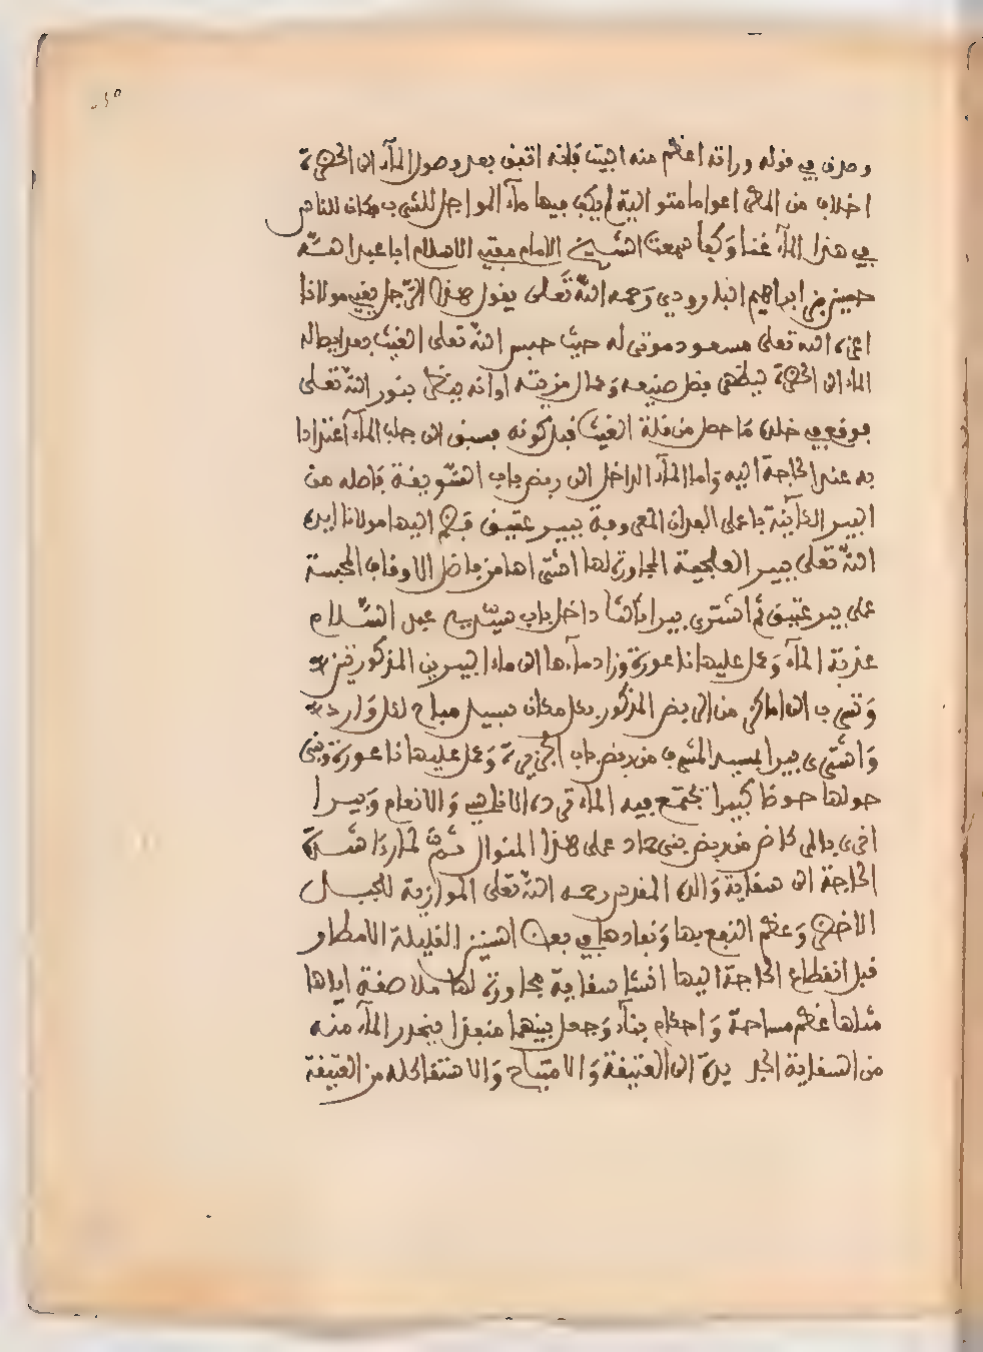 وصدق في قوله وراته اعظم منه البيت فانه اتفق بعد وصول المآء الى الحضرة
اخلاف من المطر اعواما متوالية لم يكف فيها مآء المواجل للشرب فكان للناس
في هذا المآء غنا وكفا سمعت الشيخ الامام مفتي الاسلام ابا عبد الله
حسين بن ابراهيم البارودي رحمه الله تعلى يقول هذا الرجل يعني مولانا
اعزه الله تعلى مسعود موفى له حيث حبس الله تعلى الغيث بعد ايصاله
الماء الى الحضرة ليظهر فضل صنيعه وكمال مزيته او انه ينظر بنور الله تعلى
فوقع في خلده ما حصل من قلة الغيث قبل كونه فسبق الى جلب المآء اعتدادا
به عند الحاجة اليه واما المآء الداخل الى ربض باب السويقة فاصله من
البير الكآئنة باعلى البعران المعروفة ببير عتيق فضم اليها مولانا ايده
الله تعلى بير العلجية المجاورة لها اشتراها من فاضل الاوقاف المحبسة
على بير عتيق ثم اشترى بيرا ثالثا داخل باب سيدي عبد السلام
عذبة المآء وعمل عليها ناعورة وزاد مآءها الى ماء البيرين المذكورتين
وتسرب الى اماكن من الربض المذكور بكل مكان سبيل مباح لكل وارد
واشترى بيرا بمسيد المشرف من ربض باب الجزيرة وعمل عليها ناعورة وبنى
حولها حوضا كبيرا يجتمع فيه الماء ترده الاناسي والانعام وبيرا
اخرى بالمركاض من ربض بني حماد على هذا المنوال ثم لما رءا شدة
الحاجة الى سقاية والده المقدس رحمه الله تعلى الموازية للجبل
الاخضر وعظم النفع بها ونفادها في بعض السنين القليلة الامطار
قبل انقطاع الحاجة اليها انشا سقاية مجاورة لها ملاصقة اياها
مثلها عظم مساحة واحكام بنآء وجعل بينهما منفذا ينحدر المآء منه
من السقاية الجديدة الى العتيقة والامتياح والاستقا كله من العتيقة